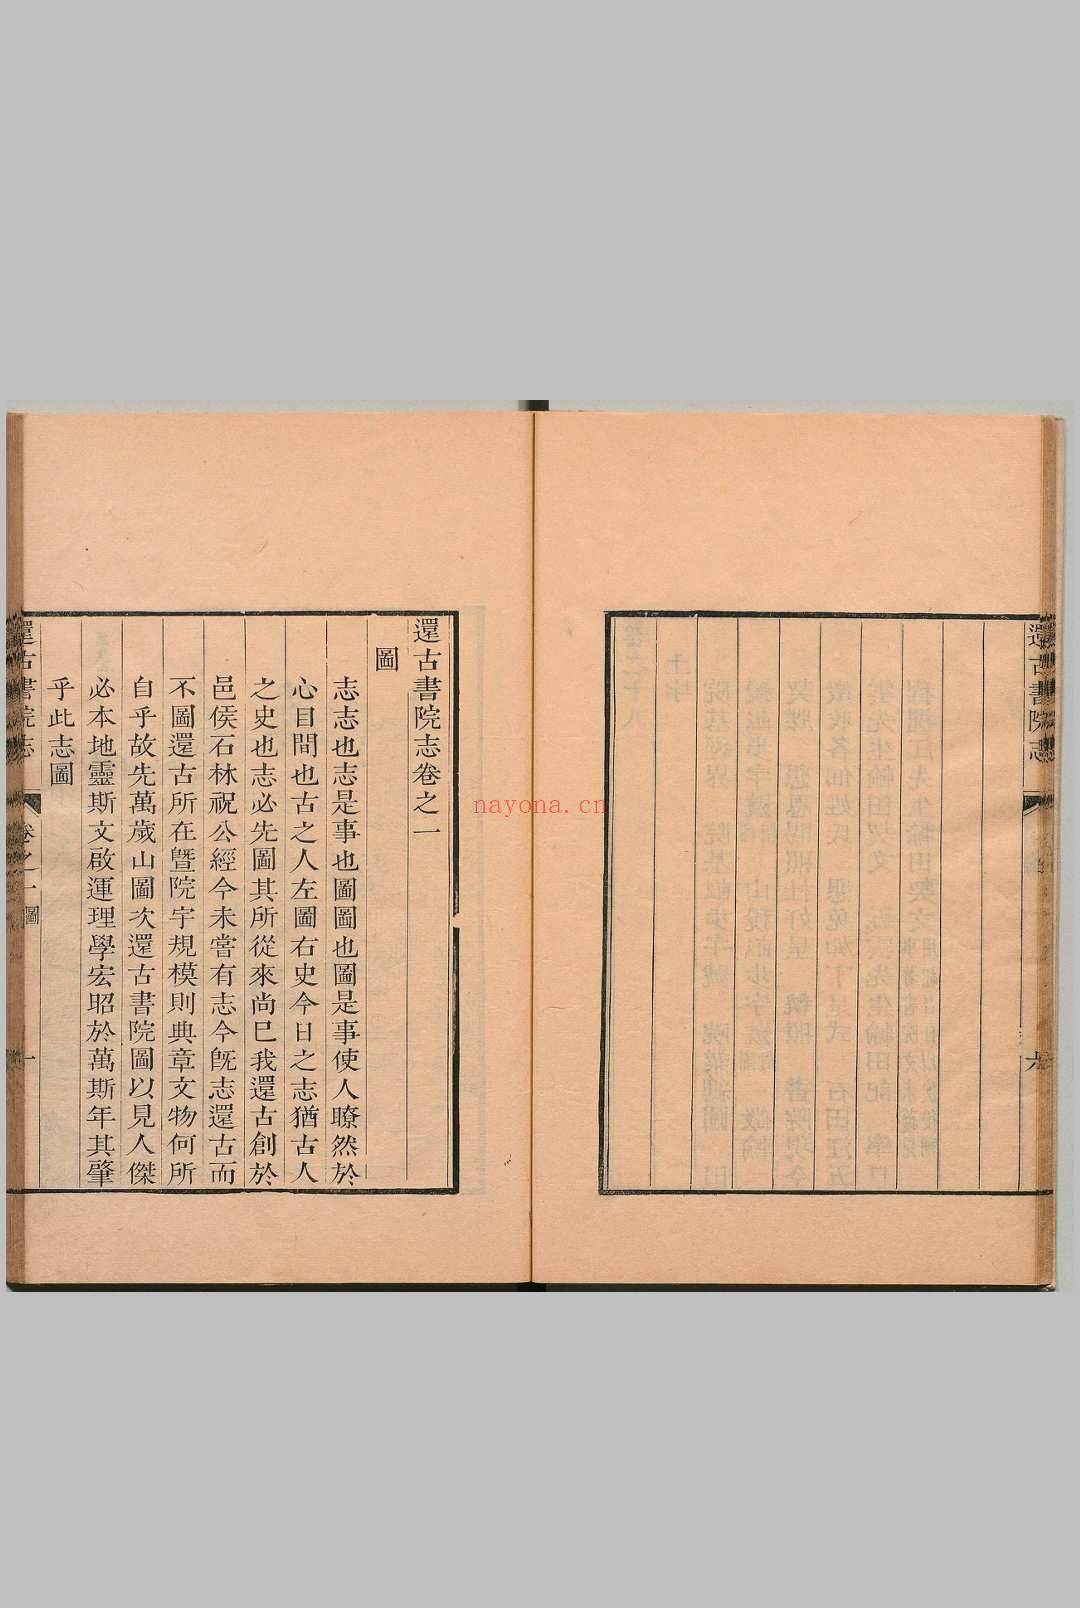 還古書院志
六
還古書院志卷之一
圖
志志也志是事也圖圖也圖是事使人瞭然於
心目間也古之人左圖右史今日之志猶古人
之史也志必先圖其所從來尚已我還古創於
邑侯石林祝公經今未嘗有志今旣志還古而
不圖還古所在曁院宇規模則典章文物何所
自乎故先萬歲山圖次還古書院圖以見人傑
必本地靈斯文啟運理學宏昭於萬斯年其肇
乎此志圖
還古書院志
卷之一圖
一
nayona.cn